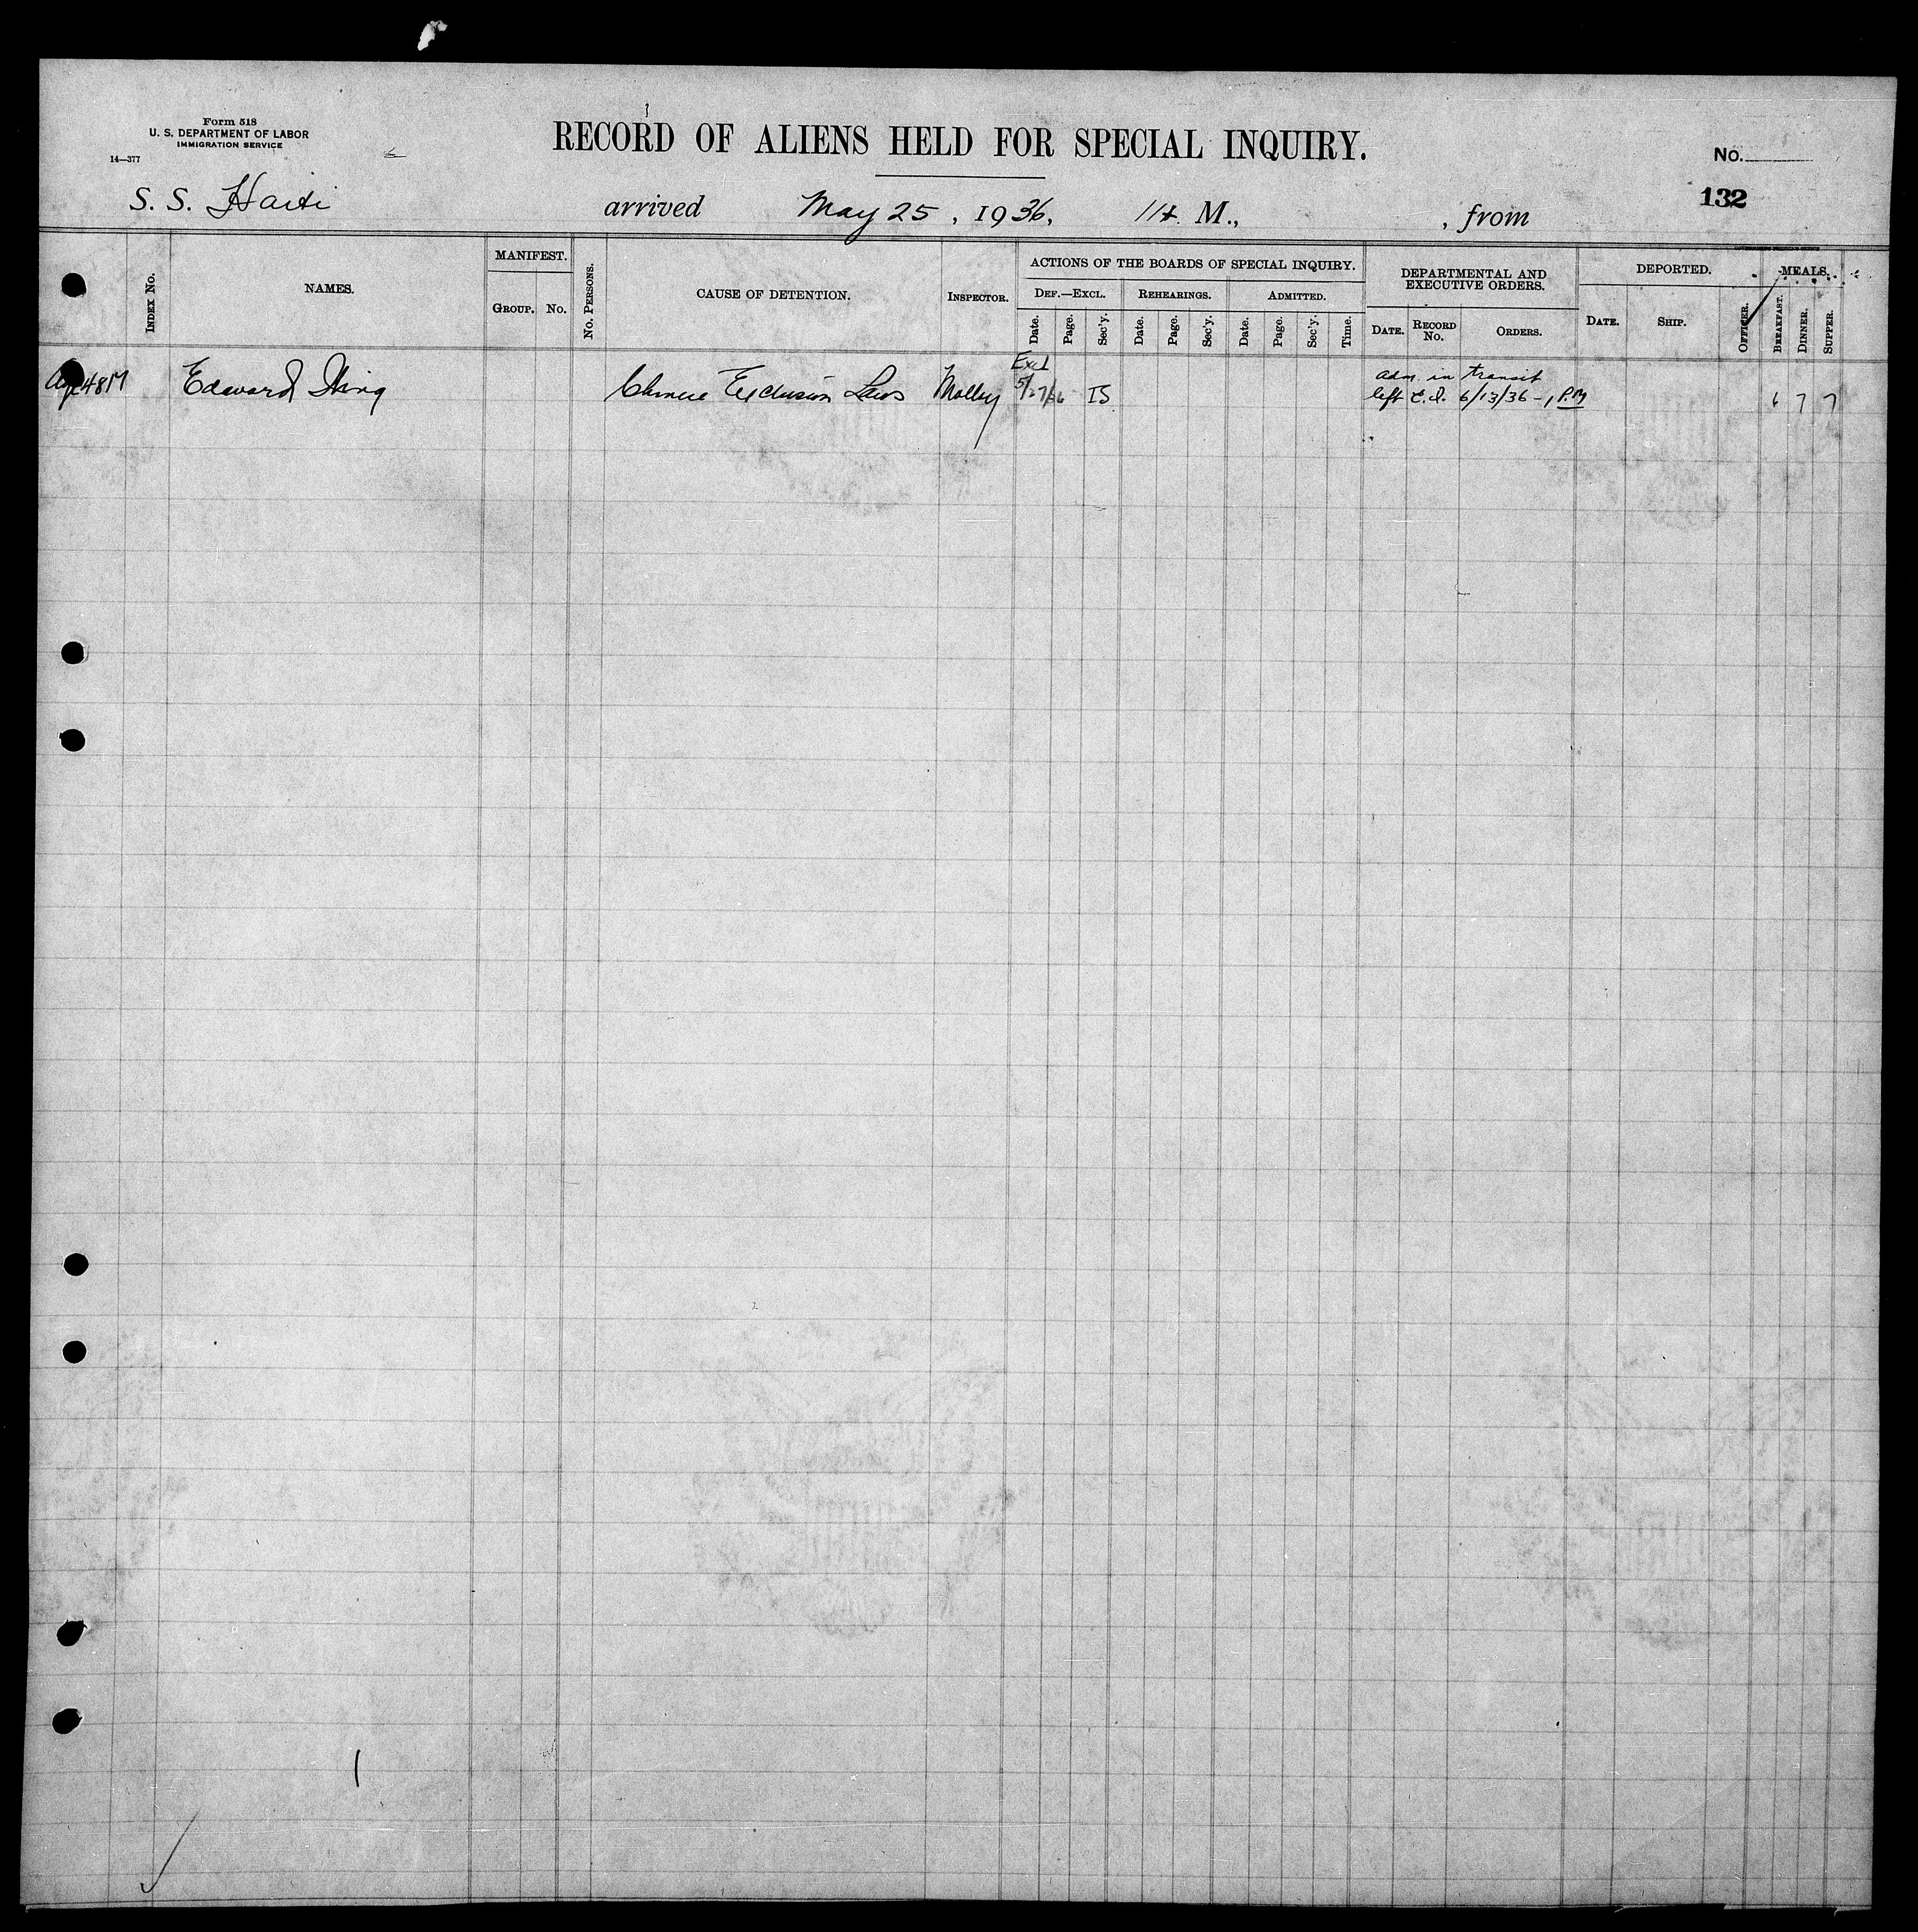 Form 518
U. S. DEPARTMENT OF LABOR
IMMIGRATION SERVICE
14—377
RECORD OF ALIENS HELD FOR SPECIAL INQUIRY.
No.
132
S. S. Haiti
arrived May 25, 1936, M., , from
INDEX NO.
NAMES.
MANIFEST.
GROUP. NO.
NO. PERSONS.
CAUSE OF DETENTION.
INSPECTOR.
ACTIONS OF THE BOARDS OF SPECIAL INQUIRY.
DEF.—EXCL. REHEARINGS. ADMITTED.
Date. Page. Sec'y. Date. Page. Sec'y. Date. Page. Sec'y. Time.
DEPARTMENTAL AND
EXECUTIVE ORDERS.
DATE. RECORD NO. ORDERS.
DEPORTED.
DATE. SHIP. OFFICER.
MEALS.
BREAKFAST. DINNER. SUPPER.
Age 48 M Edward Chinese Exclusion Laws
Excl
5/27/36 IS
adm. in transit
left E.I. 6/13/36 - 1 P.M
6 7 7